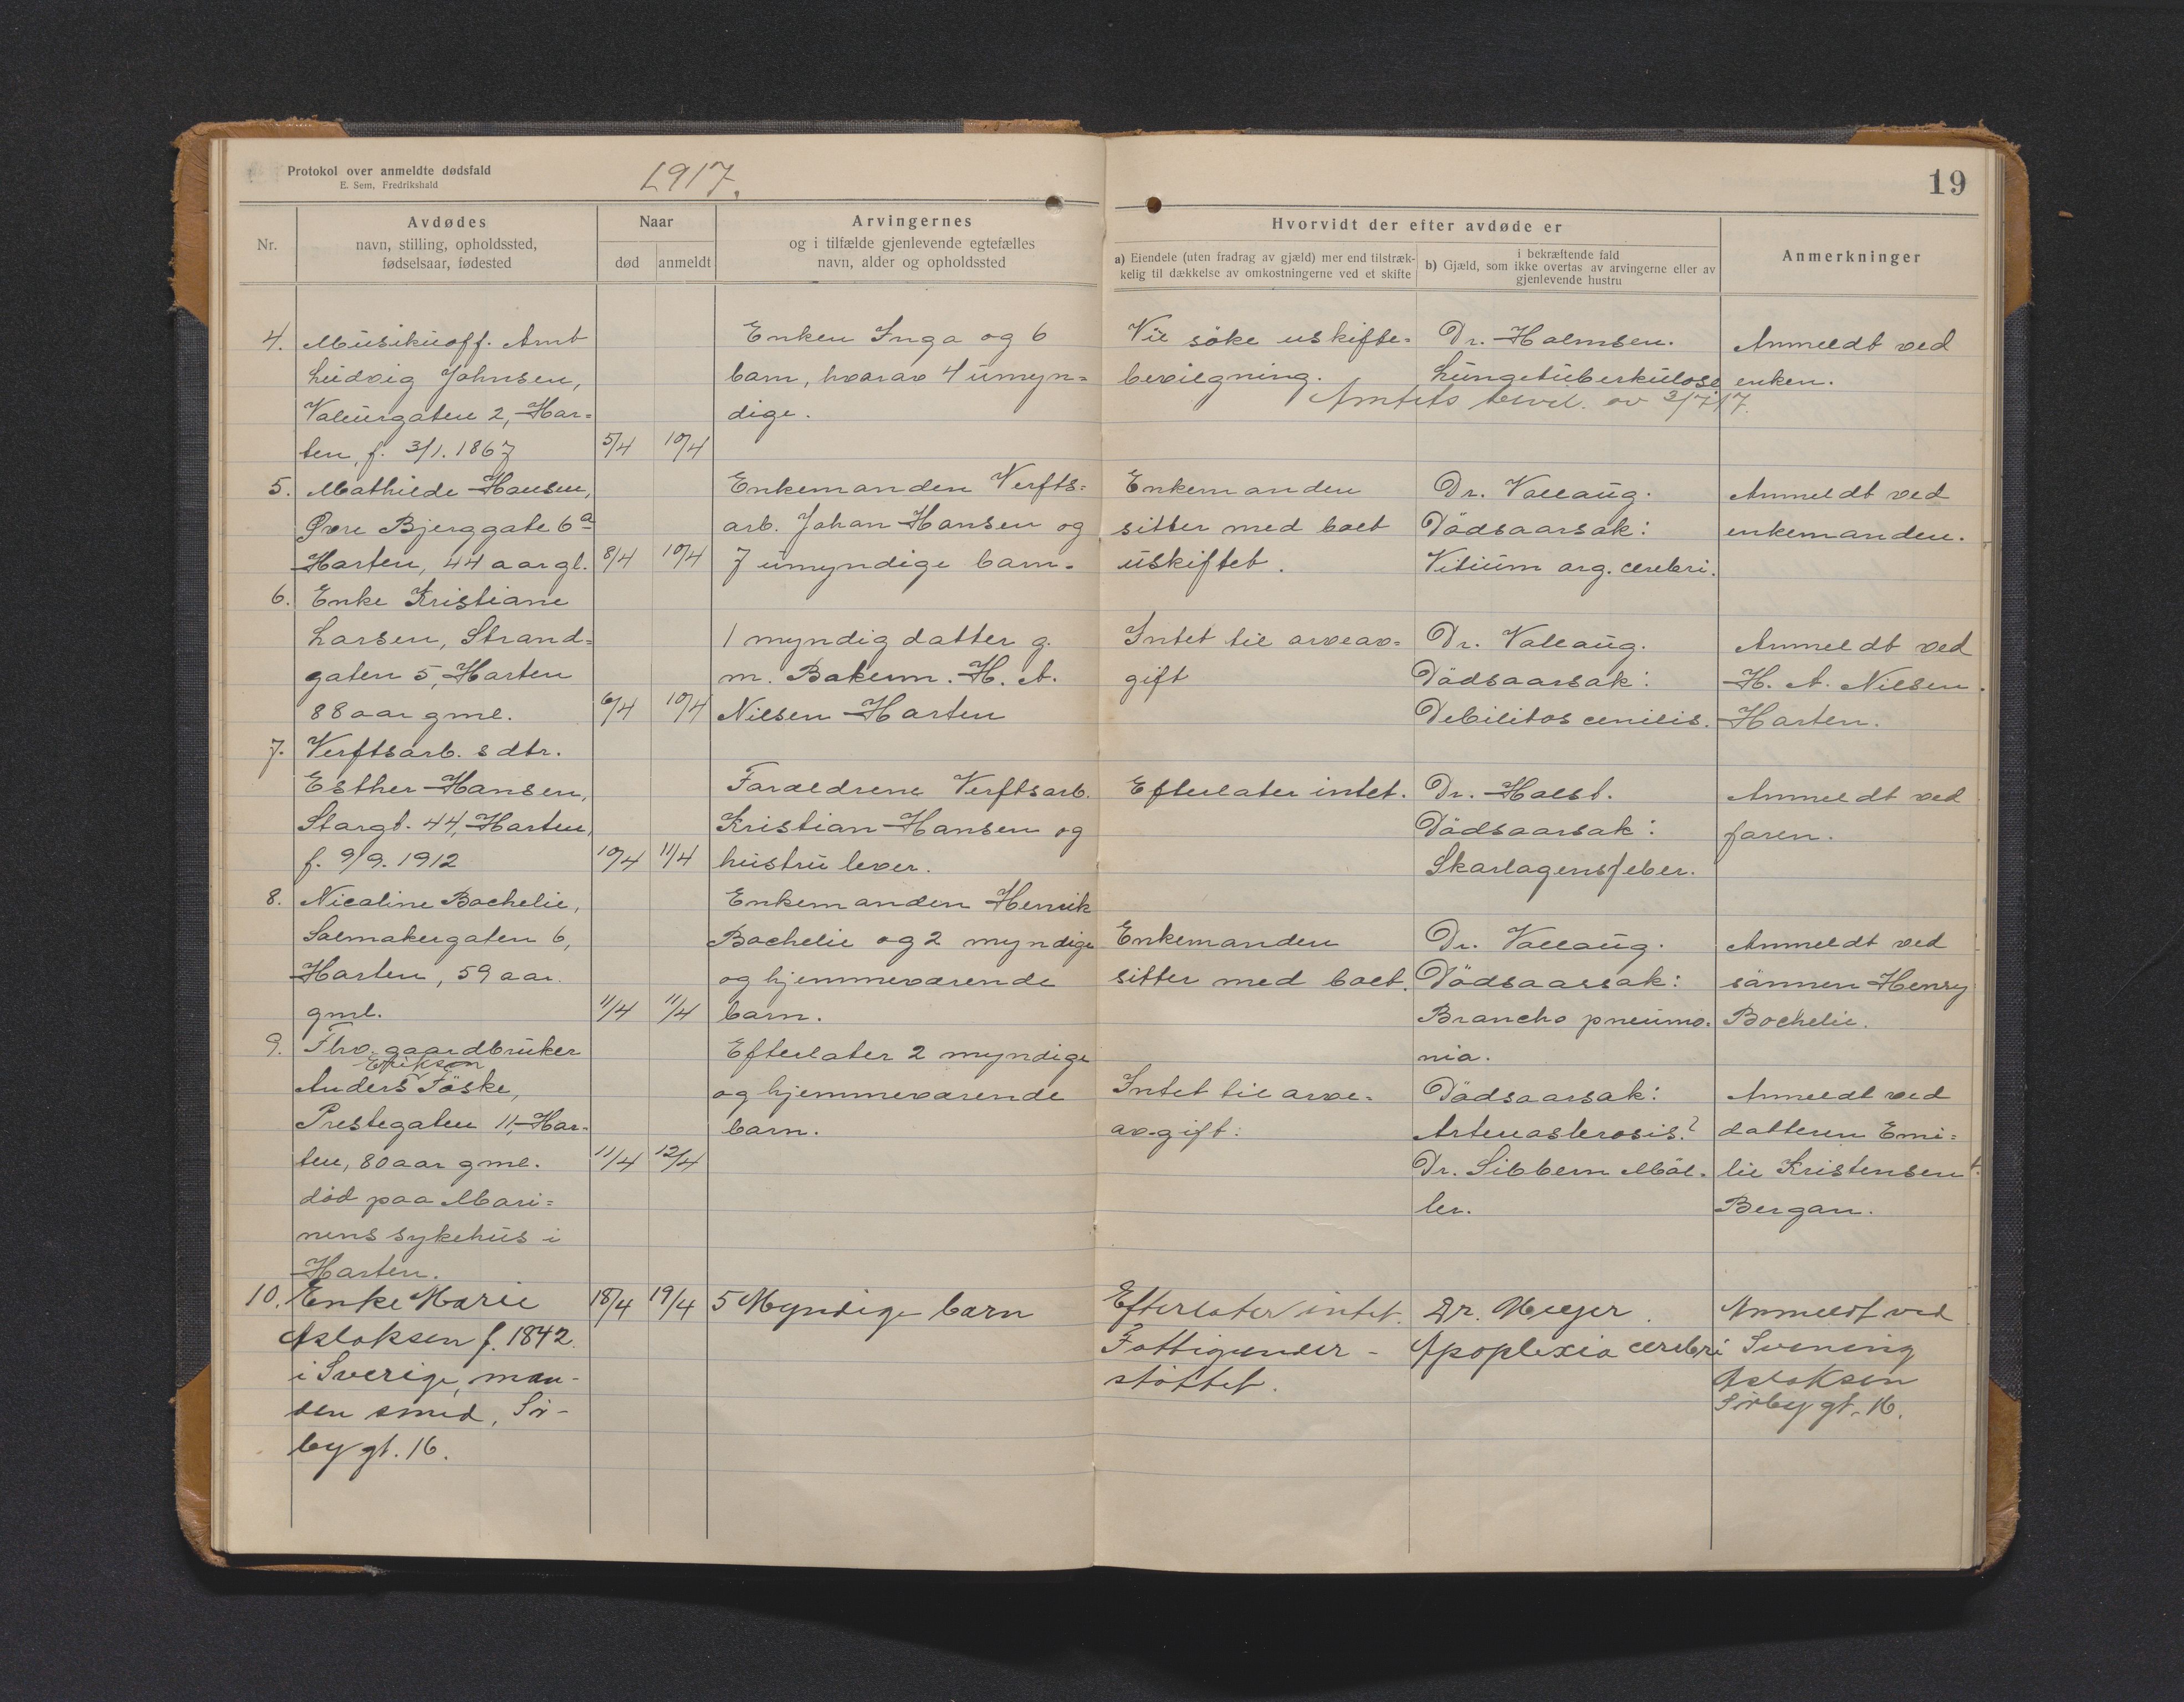 Protokol over anmeldte dødsfald
E. Sem, Fredrikshald
1917.
19
Nr.
Avdødes
navn, stilling, opholdssted,
fødselsaar, fødested
Naar
død
anmeldt
Arvingernes
og i tilfælde gjenlevende egtefælles
navn, alder og opholdssted
Hvorvidt der efter avdøde er
a) Eiendele (uten fradrag av gjæld) mer end tilstræk-
kelig til dækkelse av omkostningerne ved et skifte
i bekræftende fald
b) Gjæld, som ikke overtas av arvingerne eller av
gjenlevende hustru
Anmerkninger
4.
Musikuoff. Arnt
Ludvig Johnsen,
Valeurgaten 2, Hor=
ten, f. 3/1. 1867
5/4
10/4
Enken Inga og 6
barn, hvorav 4 umyn=
dige.
Vil söke uskifte=
bevilgning.
Dr. Holmsen.
Lungetuberkulose
Amtets bevil. av 3/7 17.
Anmeldt ved
enken.
5.
Mathilde Hansen,
Øvre Bjerggate 6a
Horten, 44 aar gl.
8/4
10/4
Enkemanden Verfts=
arb. Johan Hansen og
7 umyndige barn.
Enkemanden
sitter med boet
uskiftet.
Dr. Vallaug.
Dödsaarsak:
Vitium org. cerebri.
Anmeldt ved
enkemanden.
6.
Enke Kristiane
Larsen, Strand=
gaten 5, Horten
88 aar gml.
6/4
10/4
1 myndig datter g.
m. Bakerm. H. A.
Nilsen Horten
Intet til arveav=
gift
Dr. Vallaug.
Dödsaarsak:
Debilitas cenilis.
Anmeldt ved
H. A. Nilsen.
Horten.
7.
Verftsarb. s dtr.
Esther Hansen,
Storgt. 44, Horten,
f. 9/9. 1912
10/4
11/4
Foraeldrene Verftsarb.
Kristian Hansen og
hustru lever.
Efterlater intet.
Dr. Holst.
Dödsaarsak:
Skarlagensfeber.
Anmeldt ved
faren.
8.
Nicoline Bochelie,
Salmakergaten 6,
Horten, 59 aar.
gml.
11/4
11/4
Enkemanden Henrik
Bochelie og 2 myndige
og hjemmeværende
barn.
Enkemanden
sitter med boet.
Dr. Vallaug.
Dödsaarsak:
Broncho pneumo.
nia.
Anmeldt ved
sönnen Henry
Bochelie.
9.
Fhv. gaardbruker
Eriksen
Anders Föske,
Prestegaten 11, Hor=
ten, 80 aar gml.
död paa Mari=
nens sykehus i
Horten.
11/4
12/4
Efterlater 2 myndige
og hjemmeværende
barn.
Intet til arve=
avgift.
Dödsaarsak:
Arterioskerosis?
Dr. Sibbern Möl=
ler.
Anmeldt ved
datteren Emi=
lie Kristensen
Bergan.
10.
Enke Marie
Aslaksen f. 1842
i Sverige, man-
den smed, Sör-
by gt. 16.
18/4
19/4
5 Myndige barn
Efterlater intet.
Fattigunder-
støttet.
Dr. Meyer.
Apoplexia cerebri
Anmeldt ved
Svening
Aslaksen
Sörby gt. 16.